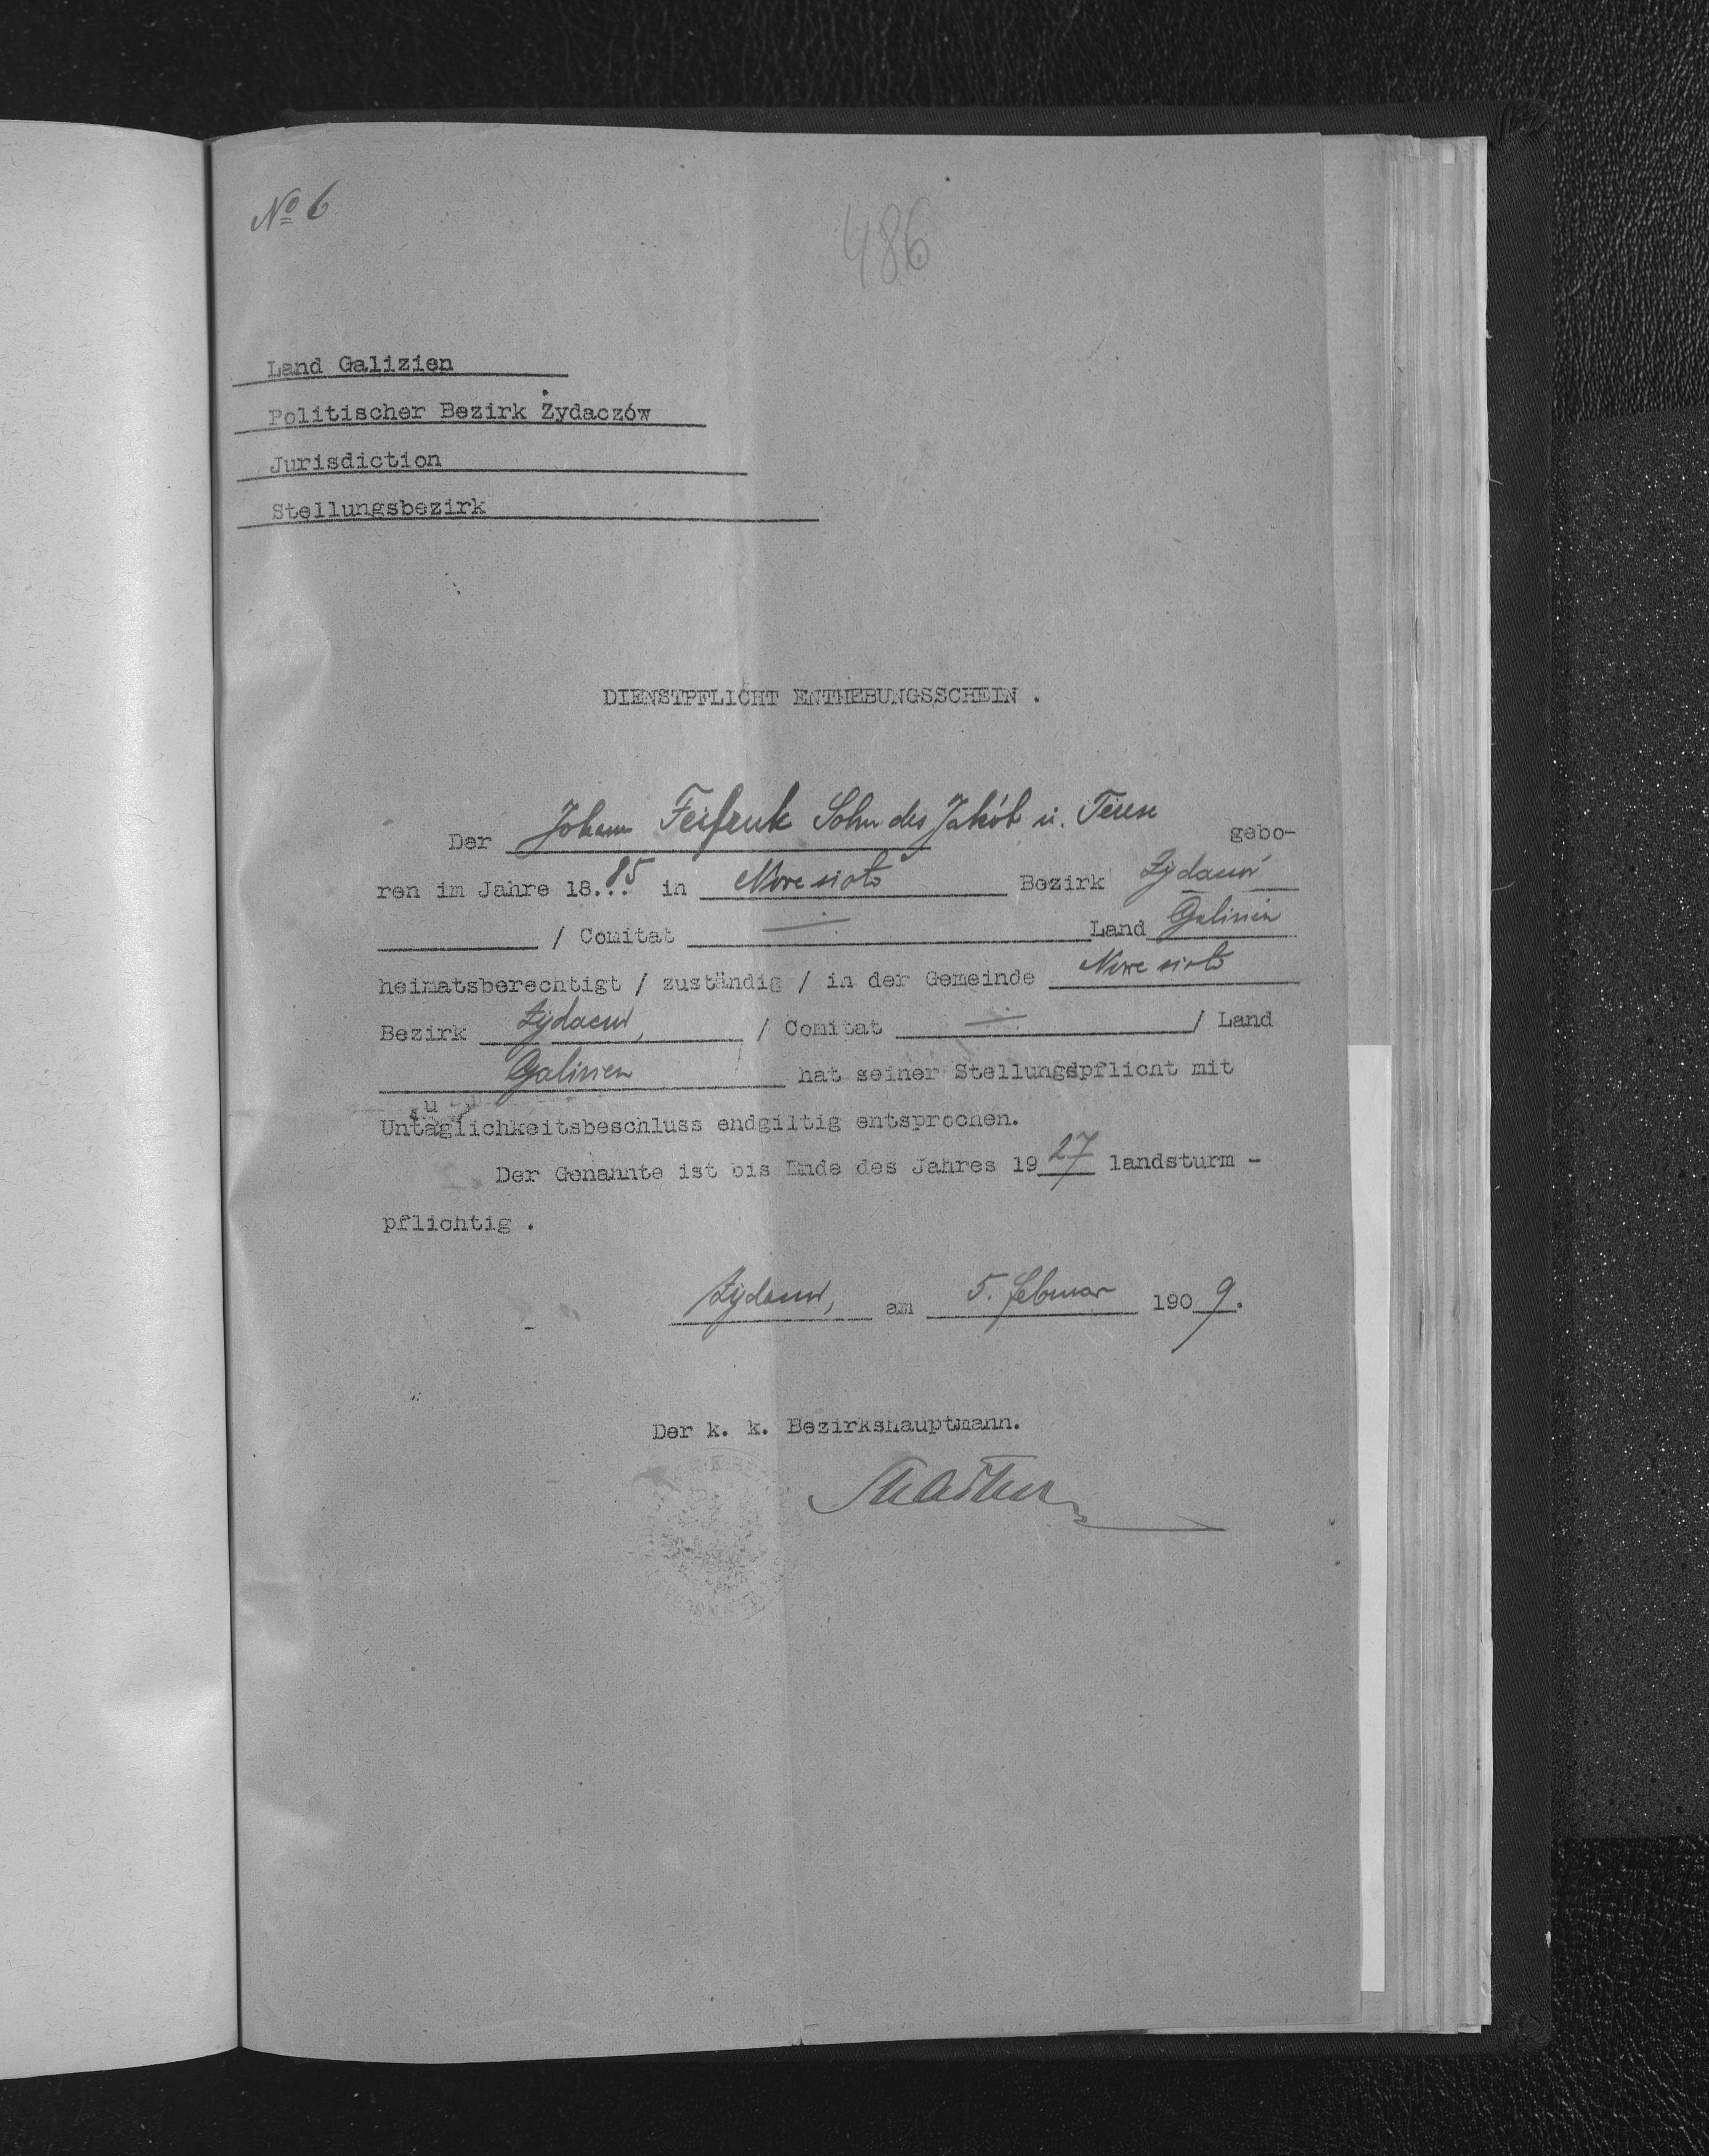 № 6
486
Land Galizien
Politischer Bezirk Żydaczów
Jurisdiction
Stellungsbezirk
DIENSTPFLICHT ENTHEBUNGSSCHEIN .
Der Johann Sohn des Jakób u. gebo-
ren im Jahre 18.85 in Nowe sioło Bezirk
/ Comitat Land Galizien
heimatsberechtigt / zuständig / in der Gemeinde Nowe sioło
Bezirk / Comitat / Land
Galizien hat seiner Stellungspflicht mit
u
Untäglichkeitsbeschluss endgiltig entsprochen.
Der Genannte ist bis Ende des Jahres 1927 landsturm -
pflichtig .
am 5. Februar 1909.
Der k. k. Bezirkshauptmann.